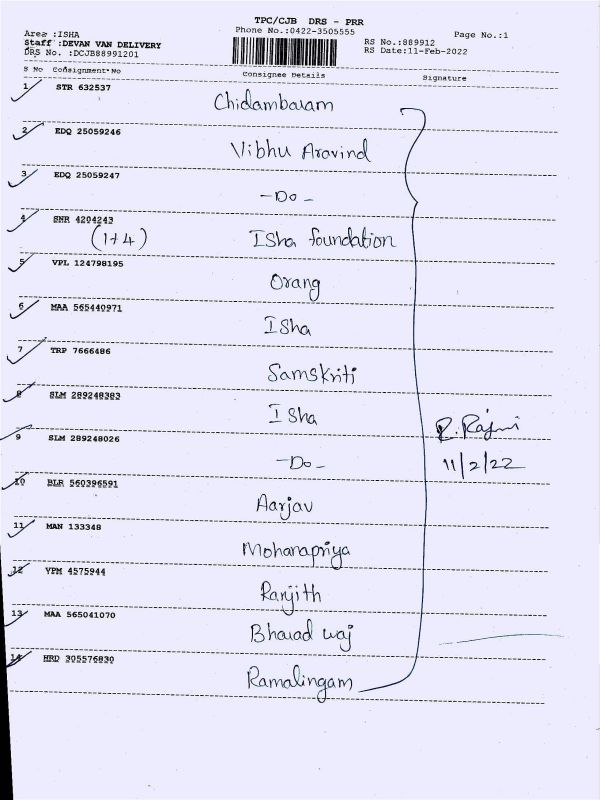 TPC/CJB DRS - PRR
Area :ISHA
Phone No.:0422-3505555
Page No.:1
Staff :DEVAN VAN DELIVERY
RS No.:889912
DRS No. :DCJB88991201
RS Date:11-Feb-2022
S No Consignment No Consignee Details Signature
1 STR 632537
Chidambaram
2 EDQ 25059246
Vibhu Aravind
3 EDQ 25059247
-Do-
4 SNR 4204243
(1+4) Isha foundation
5 VPL 124798195
Orang
6 MAA 565440971
Isha
7 TRP 7666486
Samskriti
8 SLM 289248383
Isha
R. Rajni
9 SLM 289248026
-Do-
11/2/22
10 BLR 560396591
Aarjav
11 MAN 133348
Mohanapriya
12 VPM 4575944
Ranjith
13 MAA 565041070
Bharad waj
14 HRD 305576830
Ramalingam